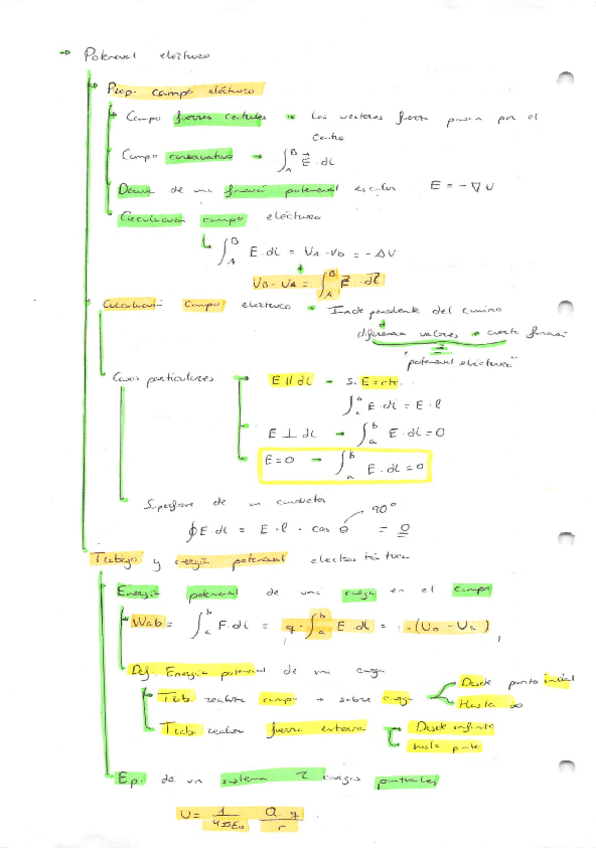 → Potencial eléctrico
Prop. campo eléctrico
Campo fuerzas centrales → Los vectores fuerza pasan por el
centro
Campo conservativo → ∫_A^B E⃗ · dl
Deriva de una función potencial escalar E = -∇U
Circulación campo eléctrico
∫_A^B E · dl = V_A - V_B = -ΔV
V_B - V_A = ∫_A^B E⃗ · dl⃗
Circulación campo eléctrico → Independiente del camino
diferencia valores → cierta función
"potencial eléctrico"
Casos particulares → E ∥ dl → Si E = cte.
∫_a^b E · dl = E · l
E ⊥ dl → ∫_a^b E · dl = 0
E = 0 → ∫_a^b E · dl = 0
Superficie de un conductor
90°
∮ E · dl = E · l · cos θ = 0
Trabajo y energía potencial electrostática
Energía potencial de una carga en el campo
Wab = ∫_a^b F · dl = q · ∫_a^b E · dl = -(U_B - U_A)
Def. Energía potencial de una carga
Trab. realiza campo → sobre carga
Desde punto inicial
Hasta ∞
Trab. realiza fuerza externa
Desde infinito
hasta punto
E.p. de un sistema 2 cargas puntuales
U = 1/4πε₀ Q·q/r